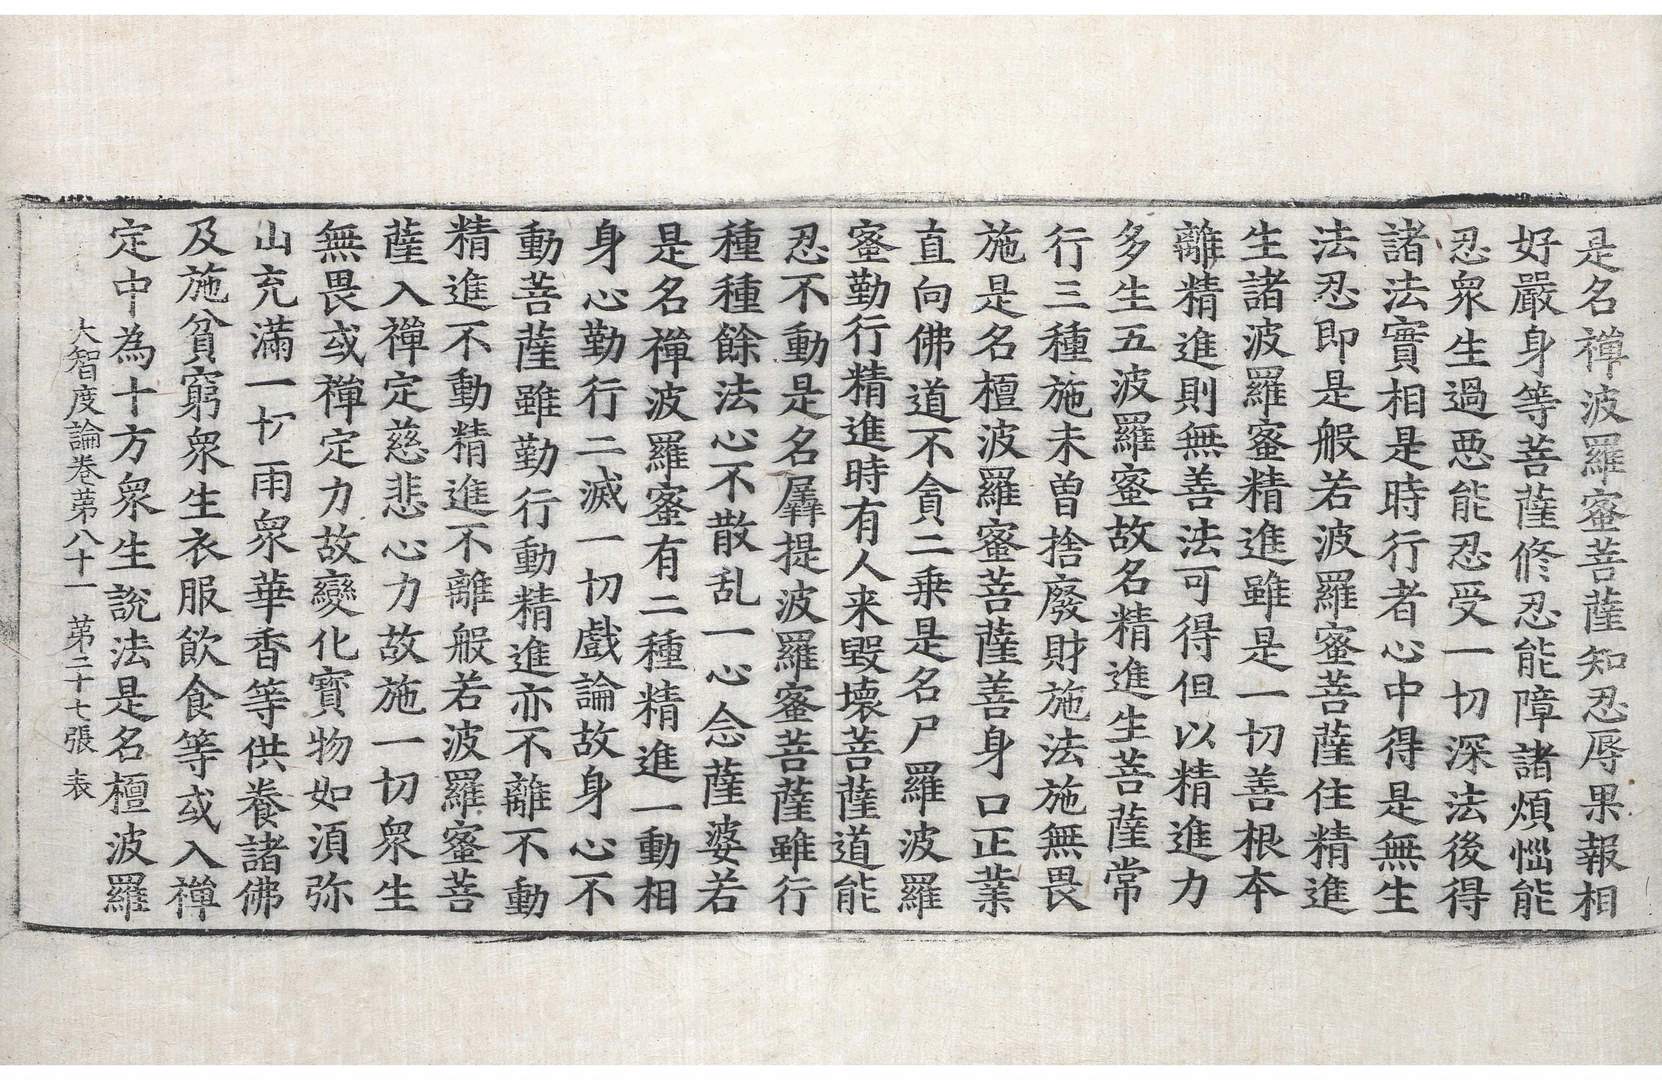 是名禪波羅蜜菩薩知忍辱果報相
好嚴身等菩薩修忍能障諸煩惱能
忍衆生過惡能忍受一切深法後得
諸法實相是時行者心中得是無生
法忍即是般若波羅蜜菩薩住精進
生諸波羅蜜精進雖是一切善根本
離精進則無善法可得但以精進力
多生五波羅蜜故名精進生菩薩常
行三種施未曽捨廢財施法施無畏
施是名檀波羅蜜菩薩善身口正業
直向佛道不貪二乗是名尸羅波羅
蜜勤行精進時有人来毀壞菩薩道能
忍不動是名羼提波羅蜜菩薩雖行
種種餘法心不散乱一心念薩婆若
是名禪波羅蜜有二種精進一動相
身心勤行二滅一切戲論故身心不
動菩薩雖勤行動精進亦不離不動
精進不動精進不離般若波羅蜜菩
薩入禪定慈悲心力故施一切衆生
無畏或禪定力故變化寳物如湏弥
山充滿一切雨衆華香等供養諸佛
及施貧窮衆生衣服飲食等或入禪
定中為十方衆生説法是名檀波羅
大智度論卷苐八十一 苐二十七張 表